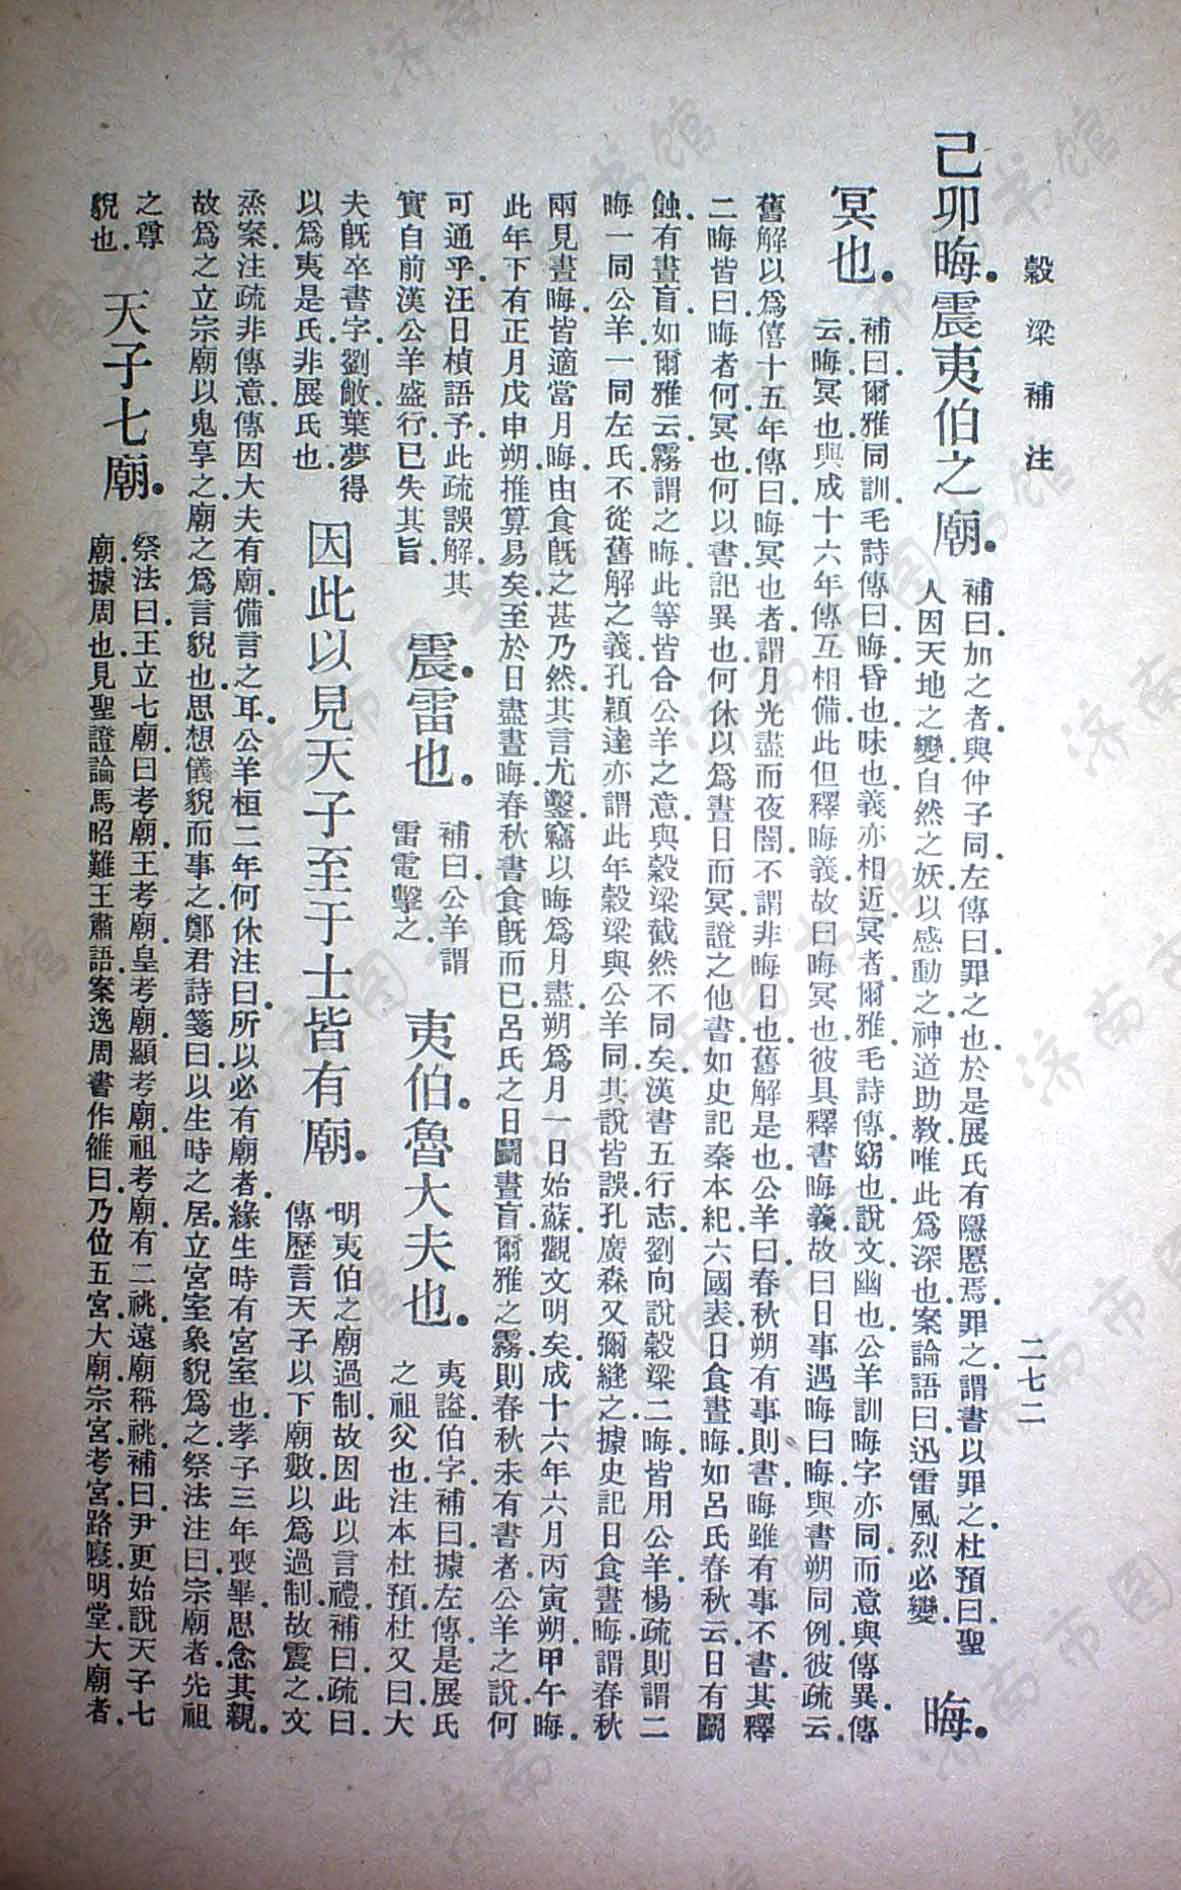 穀梁補注
二七二
己卯晦震夷伯之廟。
補曰加之者與仲子同左傳曰罪之也於是展氏有隱慝焉罪之謂書以罪之杜預曰聖
人因天地之變自然之妖以感動之神道助教唯此爲深也案論語曰迅雷風烈必變
晦。
冥也。
補曰爾雅同訓毛詩傳曰晦昏也昧也義亦相近冥者爾雅毛詩傳窈也說文幽也公羊訓晦字亦同而意與傳異傳
云晦冥也與成十六年傳互相備此但釋晦義故曰晦冥也彼具釋書晦義故曰日事遇晦曰晦與書朔同例彼疏云
舊解以爲僖十五年傳曰晦冥也者謂月光盡而夜闇不謂非晦日也舊解是也公羊曰春秋朔有事則書晦雖有事不書其釋
二晦皆曰晦者何冥也何以書記異也何休以爲晝日而冥證之他書如史記秦本紀六國表日食晝晦如呂氏春秋云日有鬭
蝕有晝盲如爾雅云霧謂之晦此等皆合公羊之意與穀梁截然不同矣漢書五行志劉向說穀梁二晦皆用公羊楊疏則謂二
晦一同公羊一同左氏不從舊解之義孔穎達亦謂此年穀梁與公羊同其說皆誤孔廣森又彌縫之據史記日食晝晦謂春秋
兩見晝晦皆適當月晦由食既之甚乃然其言尤鑿竊以晦爲月盡朔爲月一日始蘇觀文明矣成十六年六月丙寅朔甲午晦
此年下有正月戊申朔推算易矣至於日盡晝晦春秋書食既而已呂氏之日鬭晝盲爾雅之霧則春秋未有書者公羊之說何
可通乎汪日楨語予此疏誤解其
實自前漢公羊盛行已失其旨
震雷也。
補曰公羊謂
雷電擊之
夷伯魯大夫也。
夷謚伯字補曰據左傳是展氏
之祖父也注本杜預杜又曰大
夫既卒書字劉敞葉夢得
以爲夷是氏非展氏也
因此以見天子至于士皆有廟。
明夷伯之廟過制故因此以言禮補曰疏曰
傳歷言天子以下廟數以爲過制故震之文
烝案注疏非傳意傳因大夫有廟備言之耳公羊桓二年何休注曰所以必有廟者緣生時有宮室也孝子三年喪畢思念其親
故爲之立宗廟以鬼享之廟之爲言貌也思想儀貌而事之鄭君詩箋曰以生時之居立宮室象貌爲之祭法注曰宗廟者先祖
之尊
貌也
天子七廟。
祭法曰王立七廟曰考廟王考廟皇考廟顯考廟祖考廟有二祧遠廟稱祧補曰尹更始說天子七
廟據周也見聖證論馬昭難王肅語案逸周書作雒曰乃位五宮大廟宗宮考宮路寢明堂大廟者